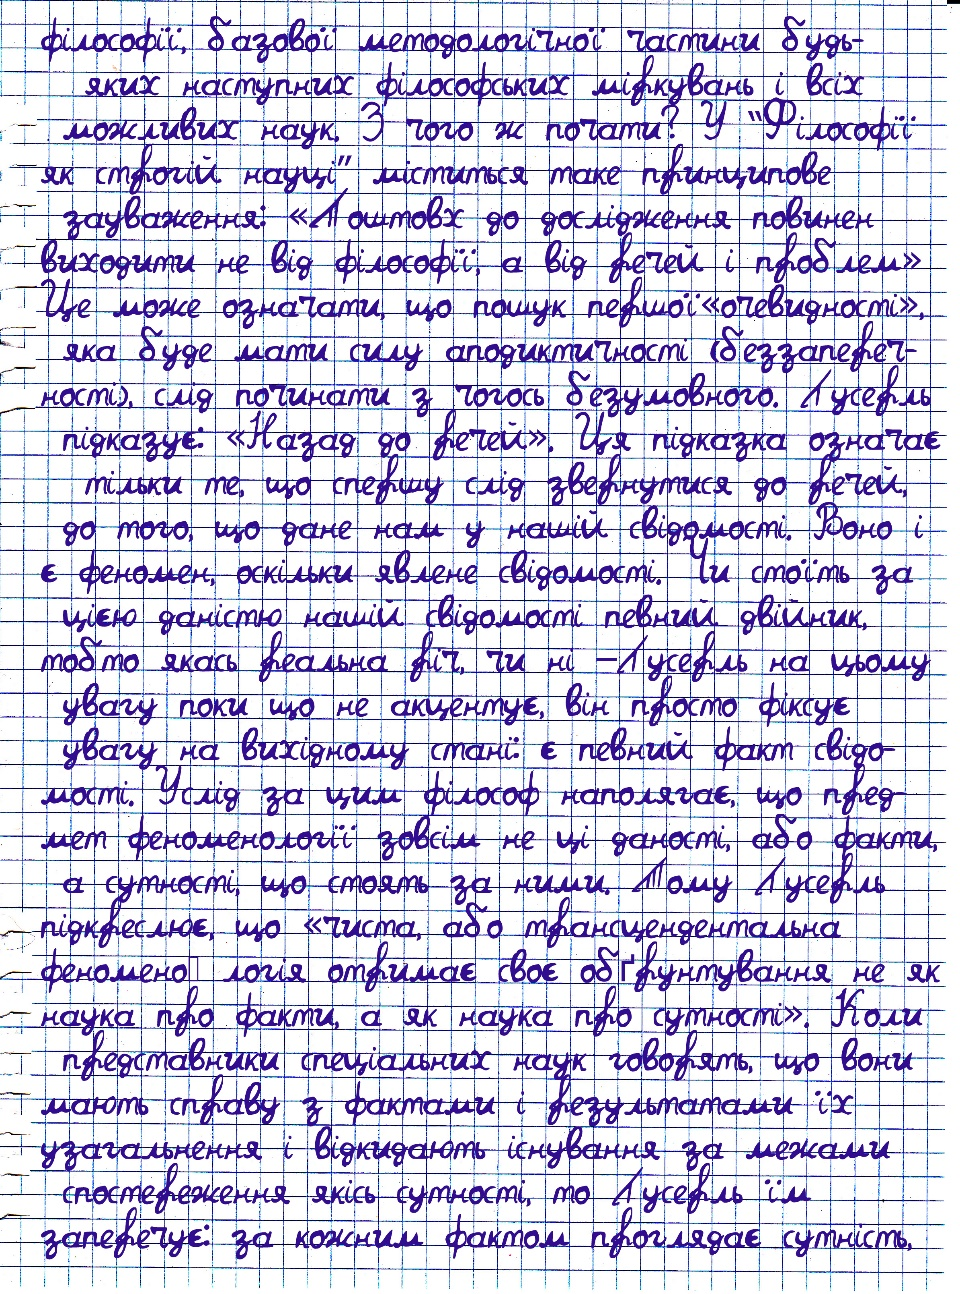 філософії, базової методологічної частини будь-
яких наступних філософських міркувань і всіх
можливих наук. З чого ж почати? У "Філософії
як строгій науці" міститься таке принципове
зауваження: «Поштовх до дослідження повинен
виходити не від філософії, а від речей і проблем»
Це може означати, що пошук першої «очевидності»,
яка буде мати силу аподиктичності (беззапереч-
ності), слід починати з чогось безумовного. Гусерль
підказує: «Назад до речей». Ця підказка означає
тільки те, що спершу слід звернутися до речей,
до того, що дане нам у нашій свідомості. Воно і
є феномен, оскільки явлене свідомості. Чи стоїть за
цією даністю нашій свідомості певний двійник,
тобто якась реальна річ, чи ні – Гусерль на цьому
увагу поки що не акцентує, він просто фіксує
увагу на вихідному стані: є певний факт свідо-
мості. Услід за цим філософ наполягає, що пред-
мет феноменології зовсім не ці даності, або факти,
а сутності, що стоять за ними. Тому Гусерль
підкреслює, що «чиста, або трансцендентальна
феномено▯ логія отримає своє обґрунтування не як
наука про факти, а як наука про сутності». Коли
представники спеціальних наук говорять, що вони
мають справу з фактами і результатами їх
узагальнення і відкидають існування за межами
спостереження якісь сутності, то Гусерль їм
заперечує: за кожним фактом проглядає сутність,